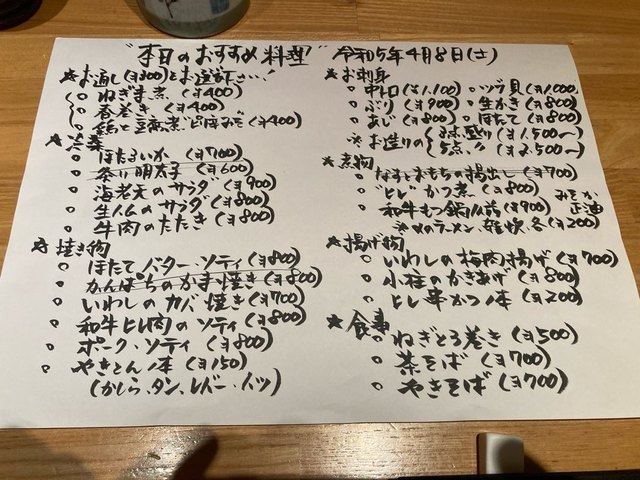 "本日のおすすめ料理" 令和5年4月8日(土)
★お通し(¥300)とお選び下さい!
○ ねぎま煮 (¥400)
○ 春巻き (¥400)
○ 鶏と豆腐煮 (¥400)
★
○ ほたるいか (¥700)
○ 祭り明太子 (¥600)
○ 海老天のサラダ (¥900)
○ 生ハムのサラダ (¥800)
○ 牛肉のたたき (¥800)
★焼き物
○ ほたてバター・ソテイ (¥800)
○ かんぱちのかま焼き (¥800)
○ いわしのカバ焼き (¥700)
○ 和牛ヒレ肉のソティ (¥800)
○ ポーク・ソティ (¥800)
○ やきとん1本 (¥150)
(かしら、タン、レバー、
★お刺身
○ 中トロ (¥1,100) ○ ツブ貝 (¥1,000)
○ ぶり (¥900) ○ 生かき (¥800)
○ あじ (¥800) ○ ほたて (¥800)
○ お造りの 3点盛り (¥1,500〜)
5点〃 (¥2,500〜)
★煮物
○ なす、おもちの揚出し (¥700)
○ "ヒレ"かつ煮 (¥800)
○ 和牛もつ鍋 (¥900) みそか 正油
※〆のラーメン、雑炊、各 (¥200)
★揚げ物
○ いわしの梅肉揚げ (¥700)
○ 小柱のかきあげ (¥800)
○ ヒレ串かつ1本 (¥200)
★食事
○ ねぎとろ巻き (¥500)
○ 茶そば (¥700)
○ やきそば (¥700)